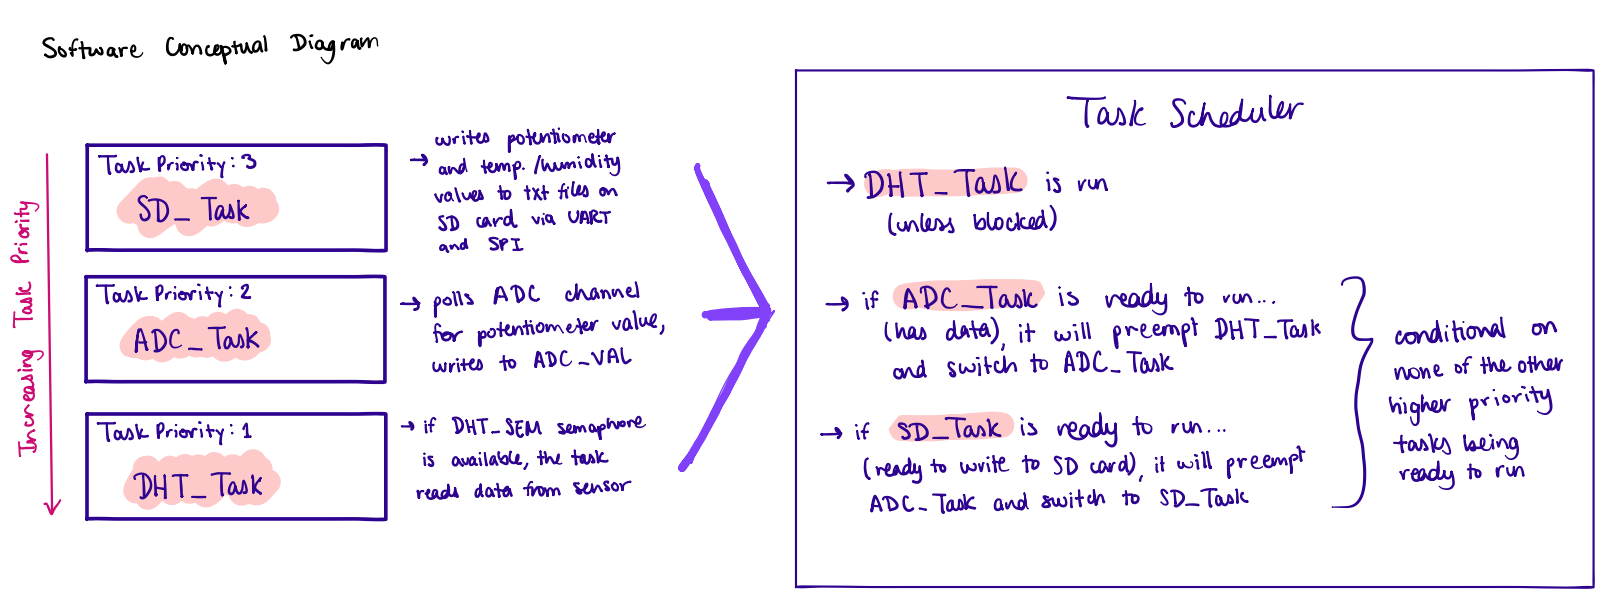 Software Conceptual Diagram
Increasing Task Priority
Task Priority: 3
SD_Task
→ writes potentiometer
and temp./humidity
values to txt files on
SD card via UART
and SPI
Task Priority: 2
ADC_Task
→ polls ADC channel
for potentiometer value,
writes to ADC_VAL
Task Priority: 1
DHT_Task
→ if DHT_SEM semaphore
is available, the task
reads data from sensor
Task Scheduler
→ DHT_Task is run
(unless blocked)
→ if ADC_Task is ready to run...
(has data), it will preempt DHT_Task
and switch to ADC_Task
→ if SD_Task is ready to run...
(ready to write to SD card), it will preempt
ADC_Task and switch to SD_Task
conditional on
none of the other
higher priority
tasks being
ready to run